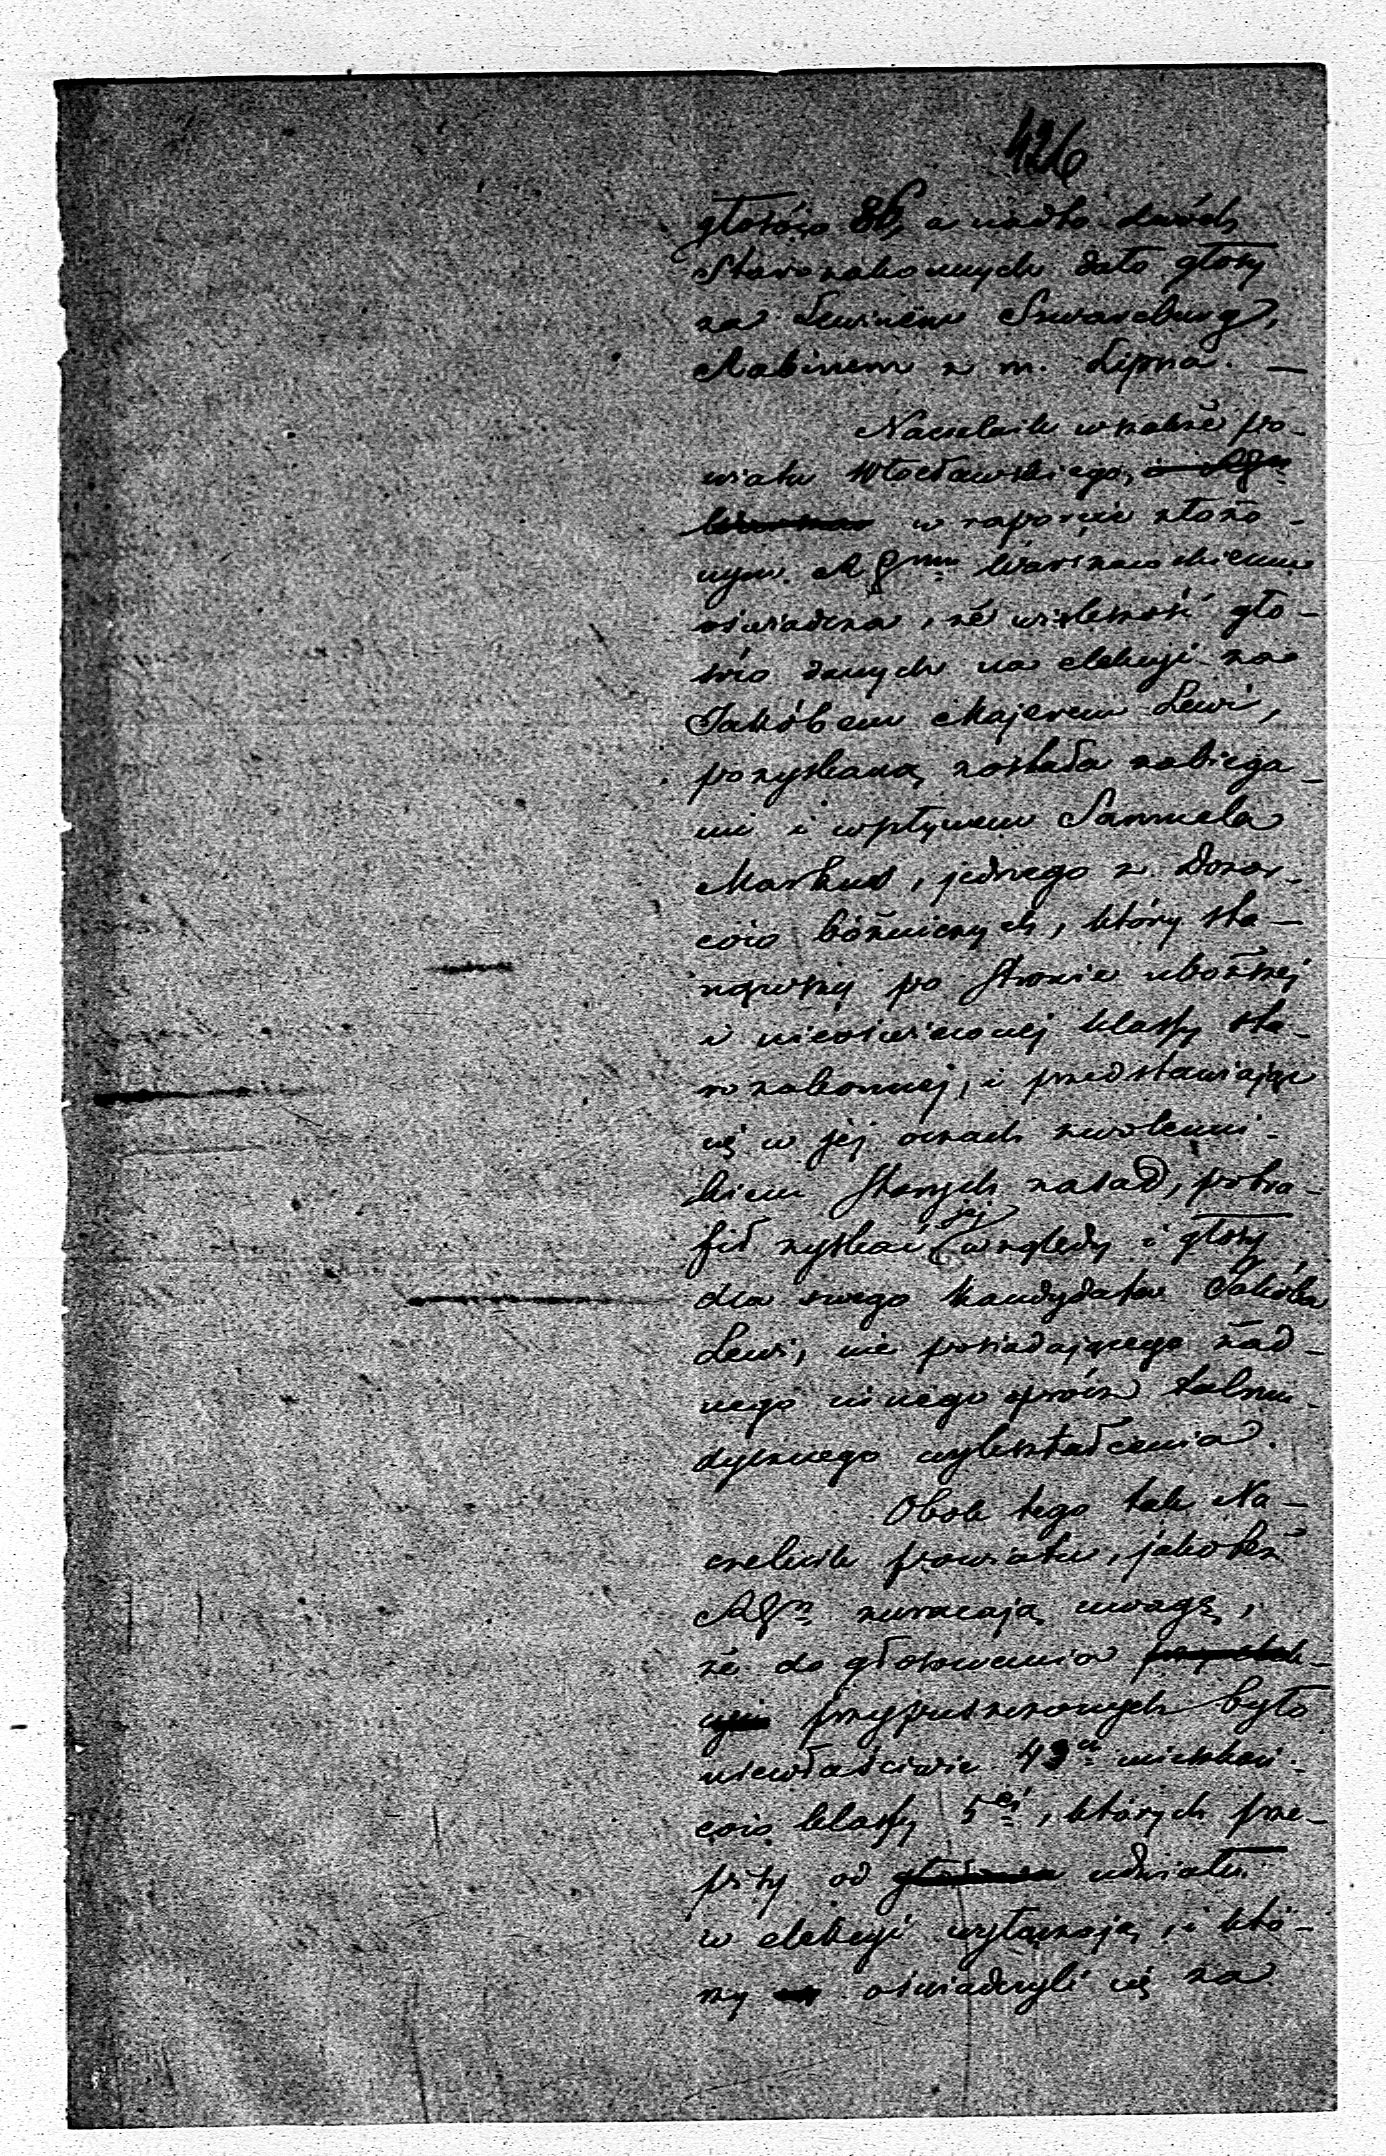 426
głosów 86, a nadto dwóch
Starozakonnych dało głosy
za Lewinem Szwarcburg,
Rabinem z m. Lipna. —
Naczelnik wszakże po-
wiatu Włocławskiego,
w raporcie złożo-
nym RGnu Warszawskiemu
oświadcza, że większość gło-
sów danych na elekcyi za
Jakóbem Majerem Lewi,
pozyskaną została zabiega-
mi i wpływem Samuela
Markus, jednego z Dozor-
ców bóżniczych, który sta-
nąwszy po stronie uboższej
i nieoświeconej klassy sta-
rozakonnej, i przedstawiając
się w jej oczach zwolenni-
kiem starych zasad, potra-
fił zyskać jej względy i głosy
dla swego kandydata Jakóba
Lewi, nie posiadającego żad-
nego innego oprócz talmu-
dycznego wykształcenia.
Obok tego tak Na-
czelnik powiatu, jakoteż
RGn zwracają uwagę,
że do głosowania
przypuszczonych było
niewłaściwie 43ch mieszkań-
ców klassy 5ej, których prze-
pisy od udziału
w elekcyi wyłączają, i któ-
rzy oświadczyli się za